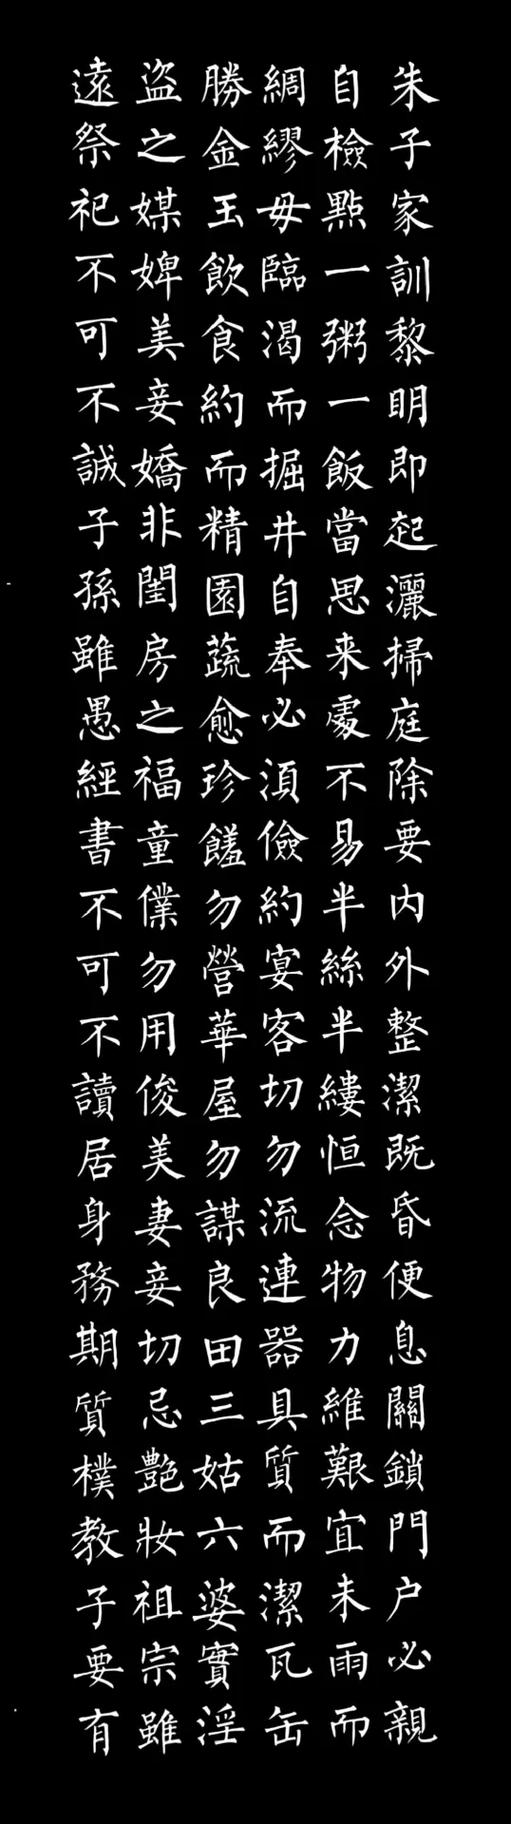 朱子家訓黎明即起灑掃庭除要內外整潔既昏便息關鎖門户必親
自檢點一粥一飯當思来處不易半絲半縷恒念物力維艱宜未雨而
綢繆毋臨渴而掘井自奉必須儉約宴客切勿流連器具質而潔瓦缶
勝金玉飲食約而精園蔬愈珍饈勿營華屋勿謀良田三姑六婆實淫
盜之媒婢美妾嬌非閨房之福童僕勿用俊美妻妾切忌艷妝祖宗雖
遠祭祀不可不誠子孫雖愚經書不可不讀居身務期質樸教子要有